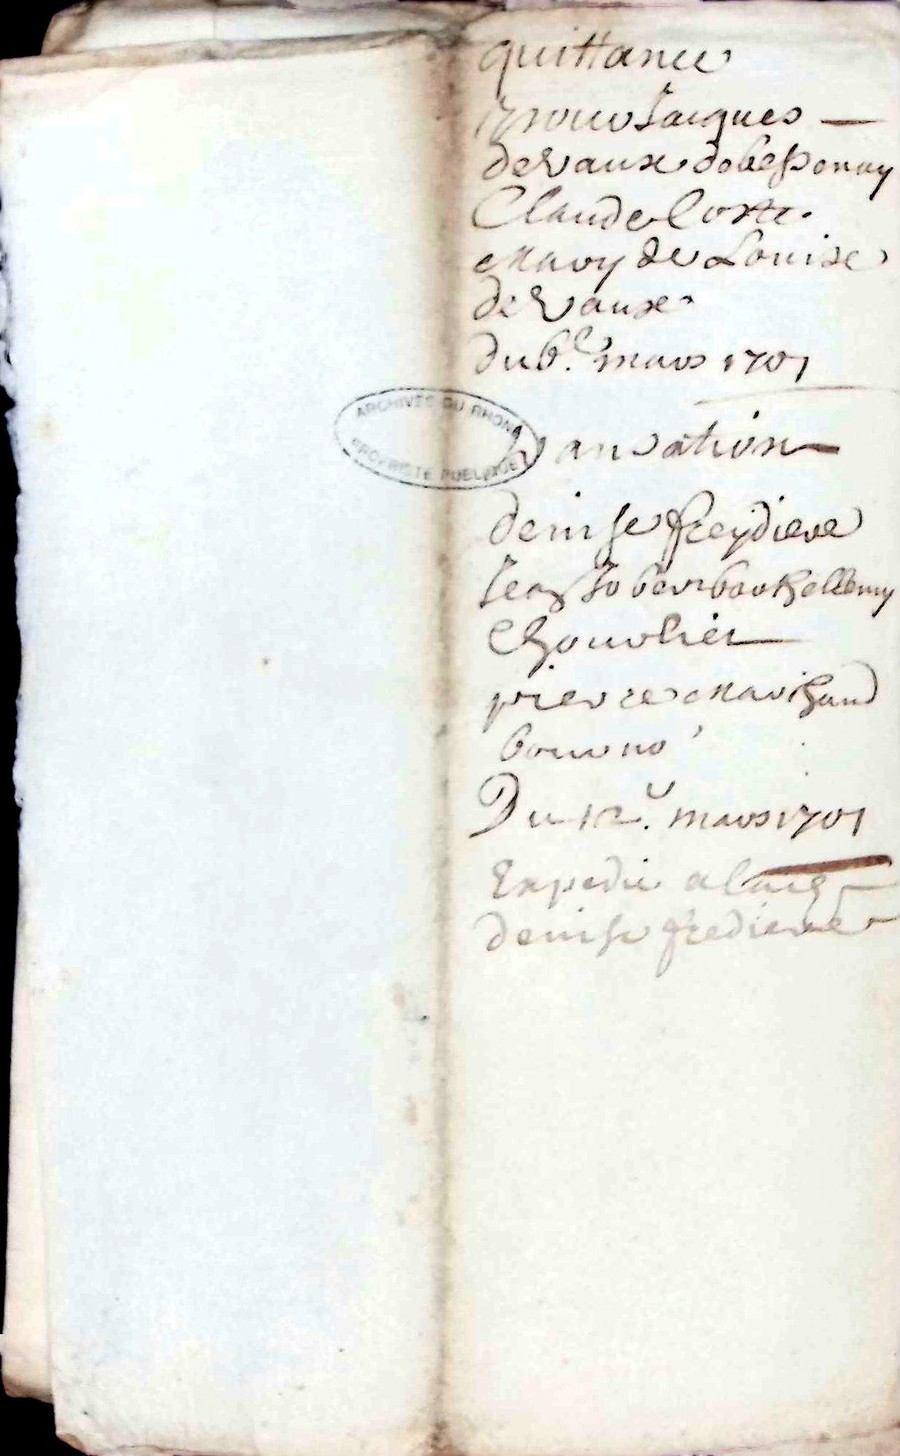 quittance
pour Jacques —
devaux de bessenay
Claude Coste.
Mary de Louise
devaux
du 6e. mars 1701
ARCHIVES DU RHONE
PROPRIETE PUBLIQUE
transation
denise freydiere
Jean barthellemy
Chouvlier
pierre Marchand
Du 12e. mars 1701
Expedie a lad
denise frediere